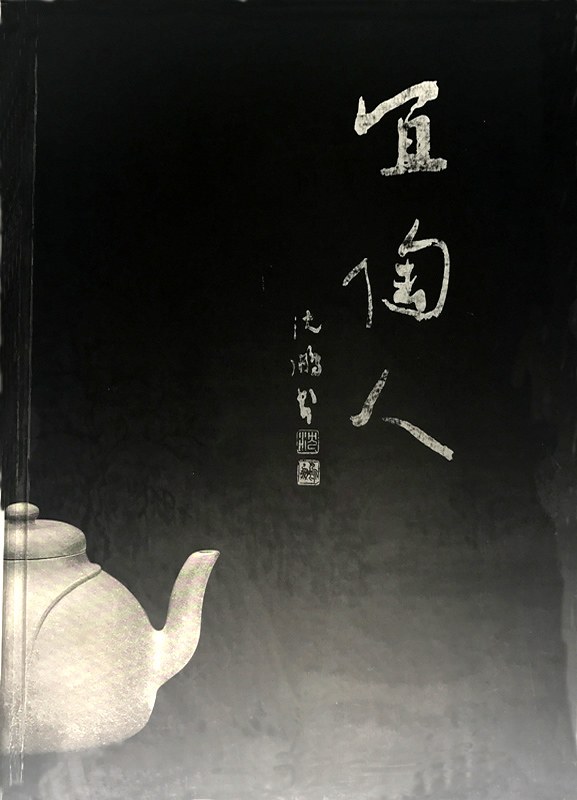 宜陶人
沈鹏书